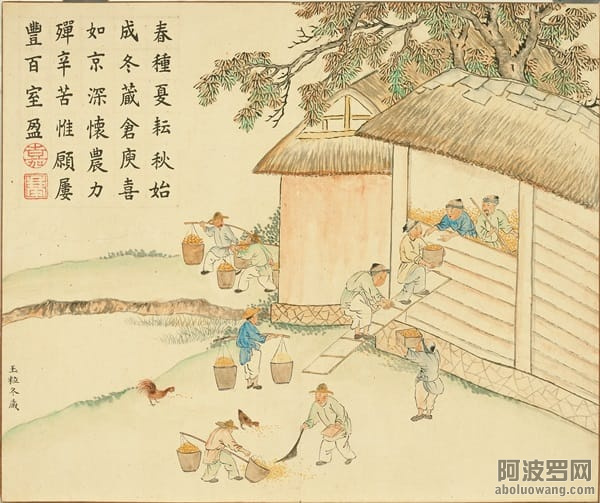 春種夏耘秋始
成冬藏倉庾喜
如京深懷農力
殫辛苦惟願屢
豐百室盈
玉粒冬藏
阿波罗网
aboluowang.com